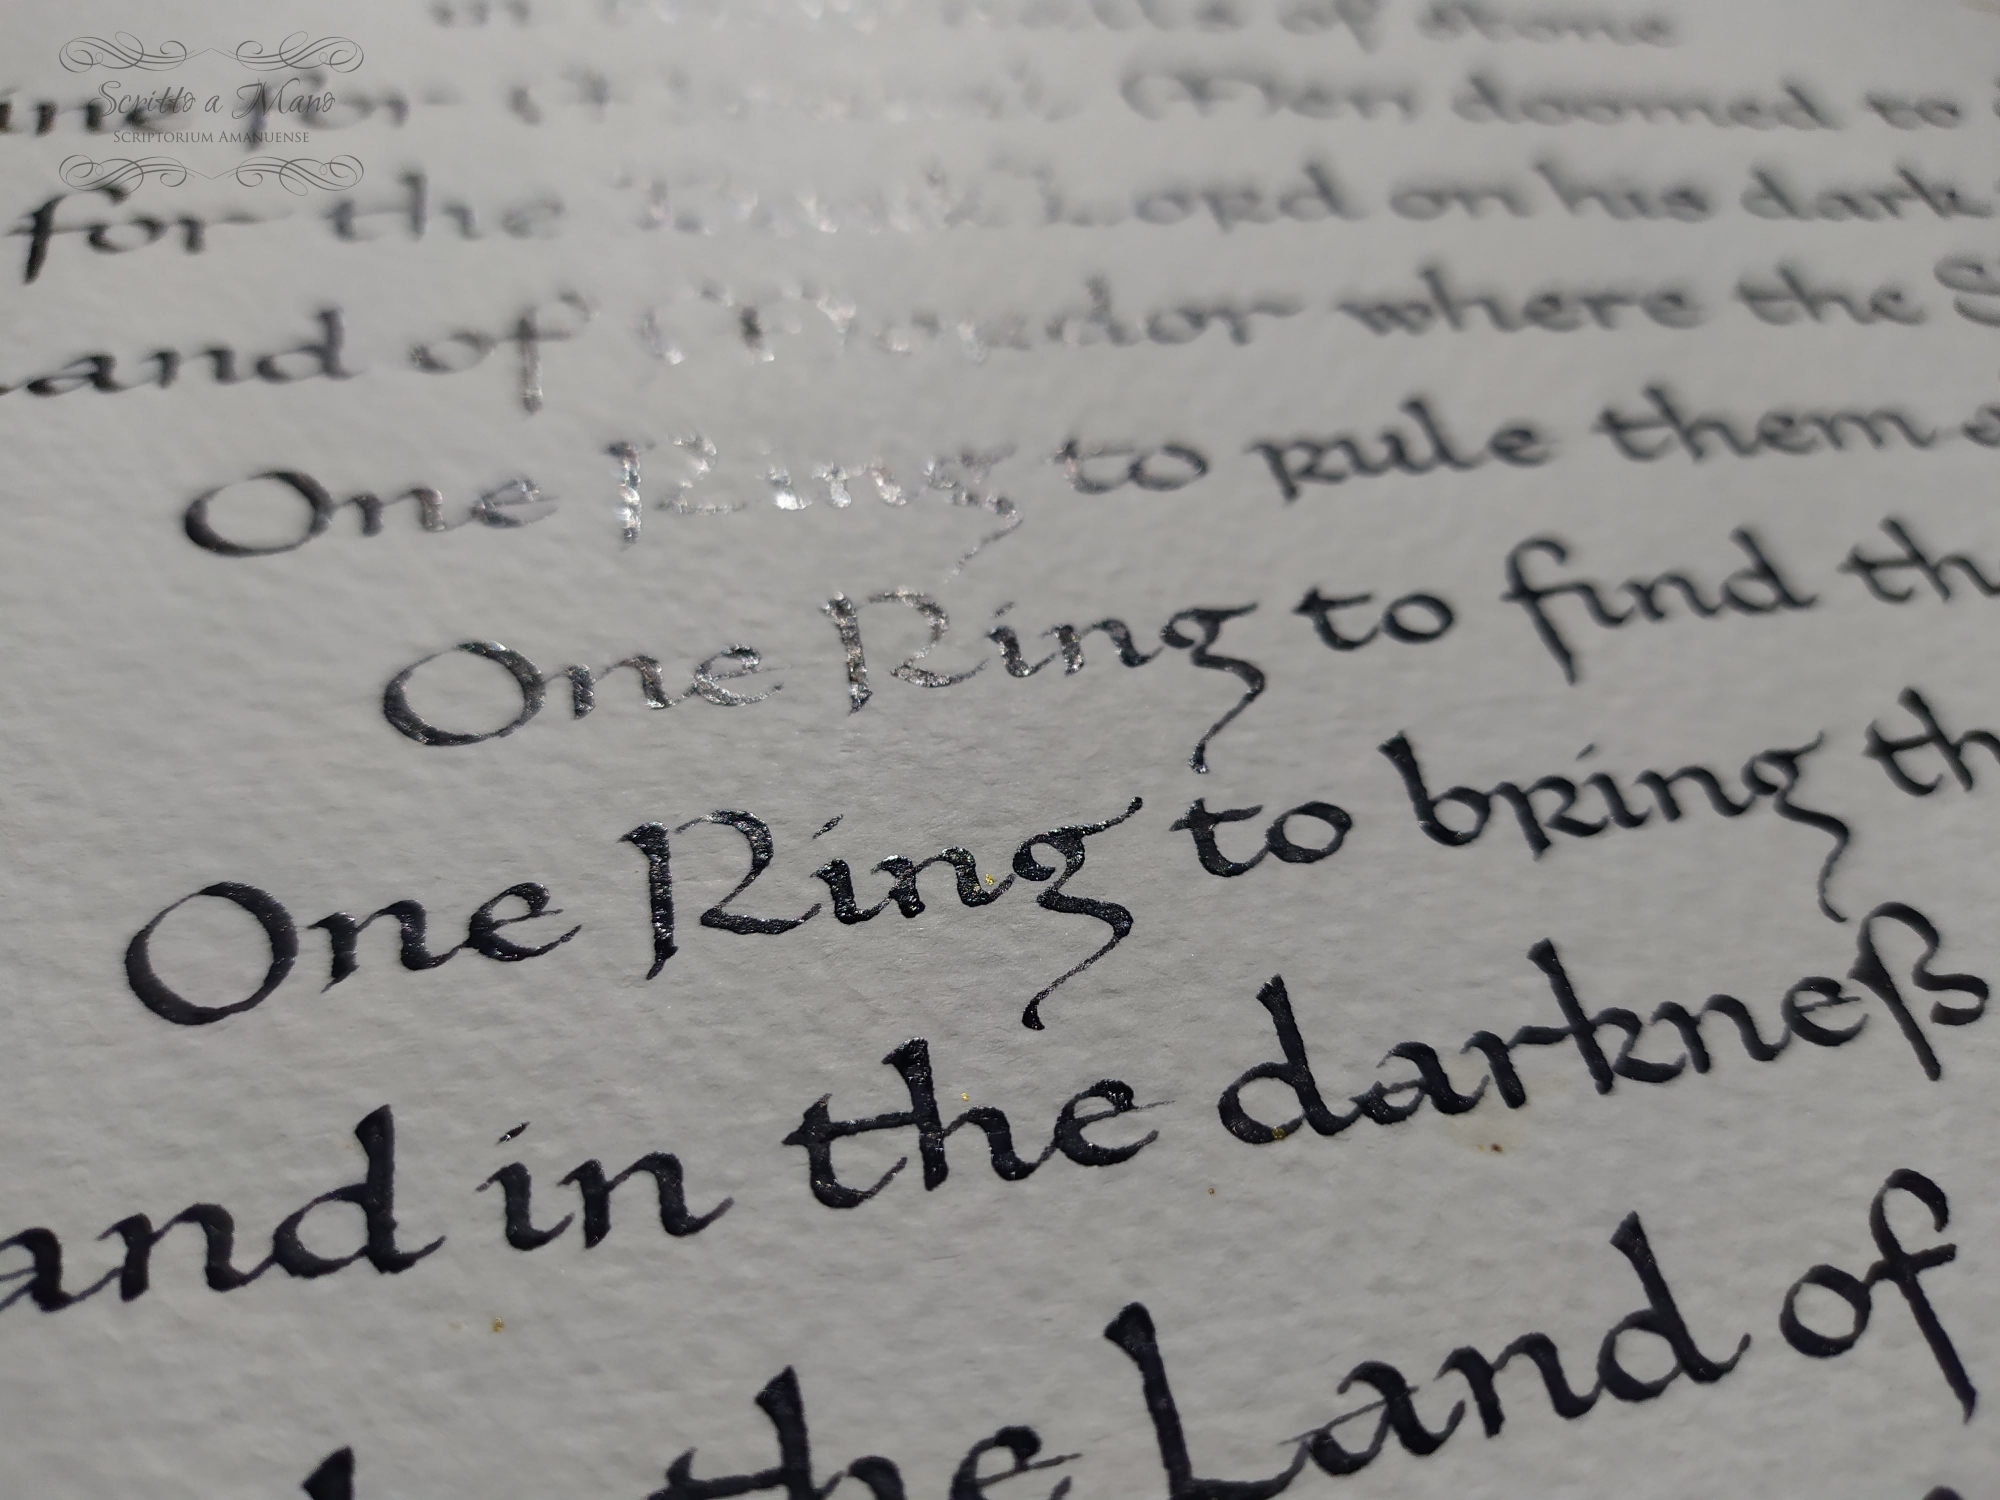 Scritto a Mano
SCRIPTORIUM AMANUENSE
in halls of stone
ine for Men doomed to
for the Dark Lord on his dark
Land of Mordor where the
One Ring to rule them
One Ring to find th
One Ring to bring th
and in the darkneß
the Land of